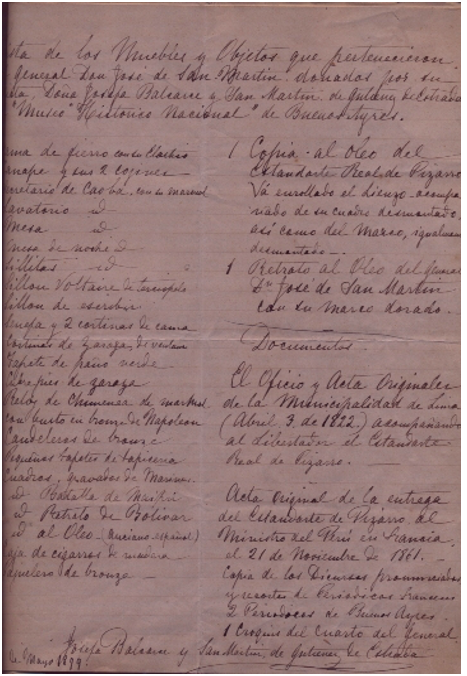 sta de los Muebles y Objetos que pertenecieron
General Don José de San Martin donados por su
ta Doña Josefa Balcarce y San Martin de Gutierrez de Estrada
"Museo Histórico Nacional" de Buenos Ayres.
ama de fierro con su
anapé y sus 2 cojines
ecretario de Caoba, con su marmol
avatorio id
Mesa id
mesa de noche id
Sillitas id
Sillon Voltaire de terciopelo
illon de escribir
y 2 cortinas de cama
Cortinas de zaraza, de ventana
Tapete de paño verde
de zaraza
Reloj de Chimenea de marmol
con busto en bronze de Napoleon
Candeleros de bronze
Pequeños tapetes de tapiceria
Cuadros, gravados de Marinas
id Batalla de Maipú
id Retrato de Bolivar
id al Oleo (anciano español)
aja de cigarros de madera
de bronze
1 Copia al oleo del
Estandarte Real de Pizarro
Vá enrollado el lienzo acompa
ñado de su cuadro desmontado,
así como del Marco, igualmen
desmontado —
1 Retrato al Oleo del General
Dn José de San Martin
con su marco dorado.
Documentos
El Oficio y Acta Originales
de la Municipalidad de Lima
(Abril 3 de 1822) acompañando
al Libertador el Estandarte
Real de Pizarro. —
Acta original de la entrega
del Estandarte de Pizarro al
Ministro del Perú en Francia,
el 21 de Noviembre de 1861. —
Copia de los Discursos pronunciados
y recortes de Periodicos franceses
2 Periodicos de Buenos Ayres.
1 Croquis del Cuarto del General
Josefa Balcarce y San Martin, de Gutierrez de Estrada
Mayo 1899